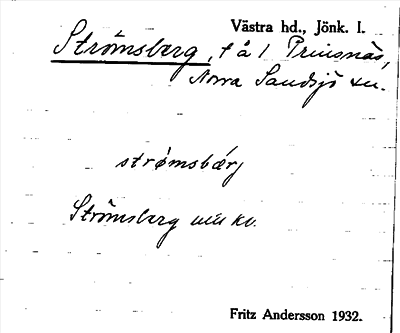 Västra hd., Jönk. l.
Strömsberg, t å 1 Prinsnäs,
Norra Sandsjö sn.
strømsbærj
Strömsberg uuu kv.
Fritz Andersson 1932.